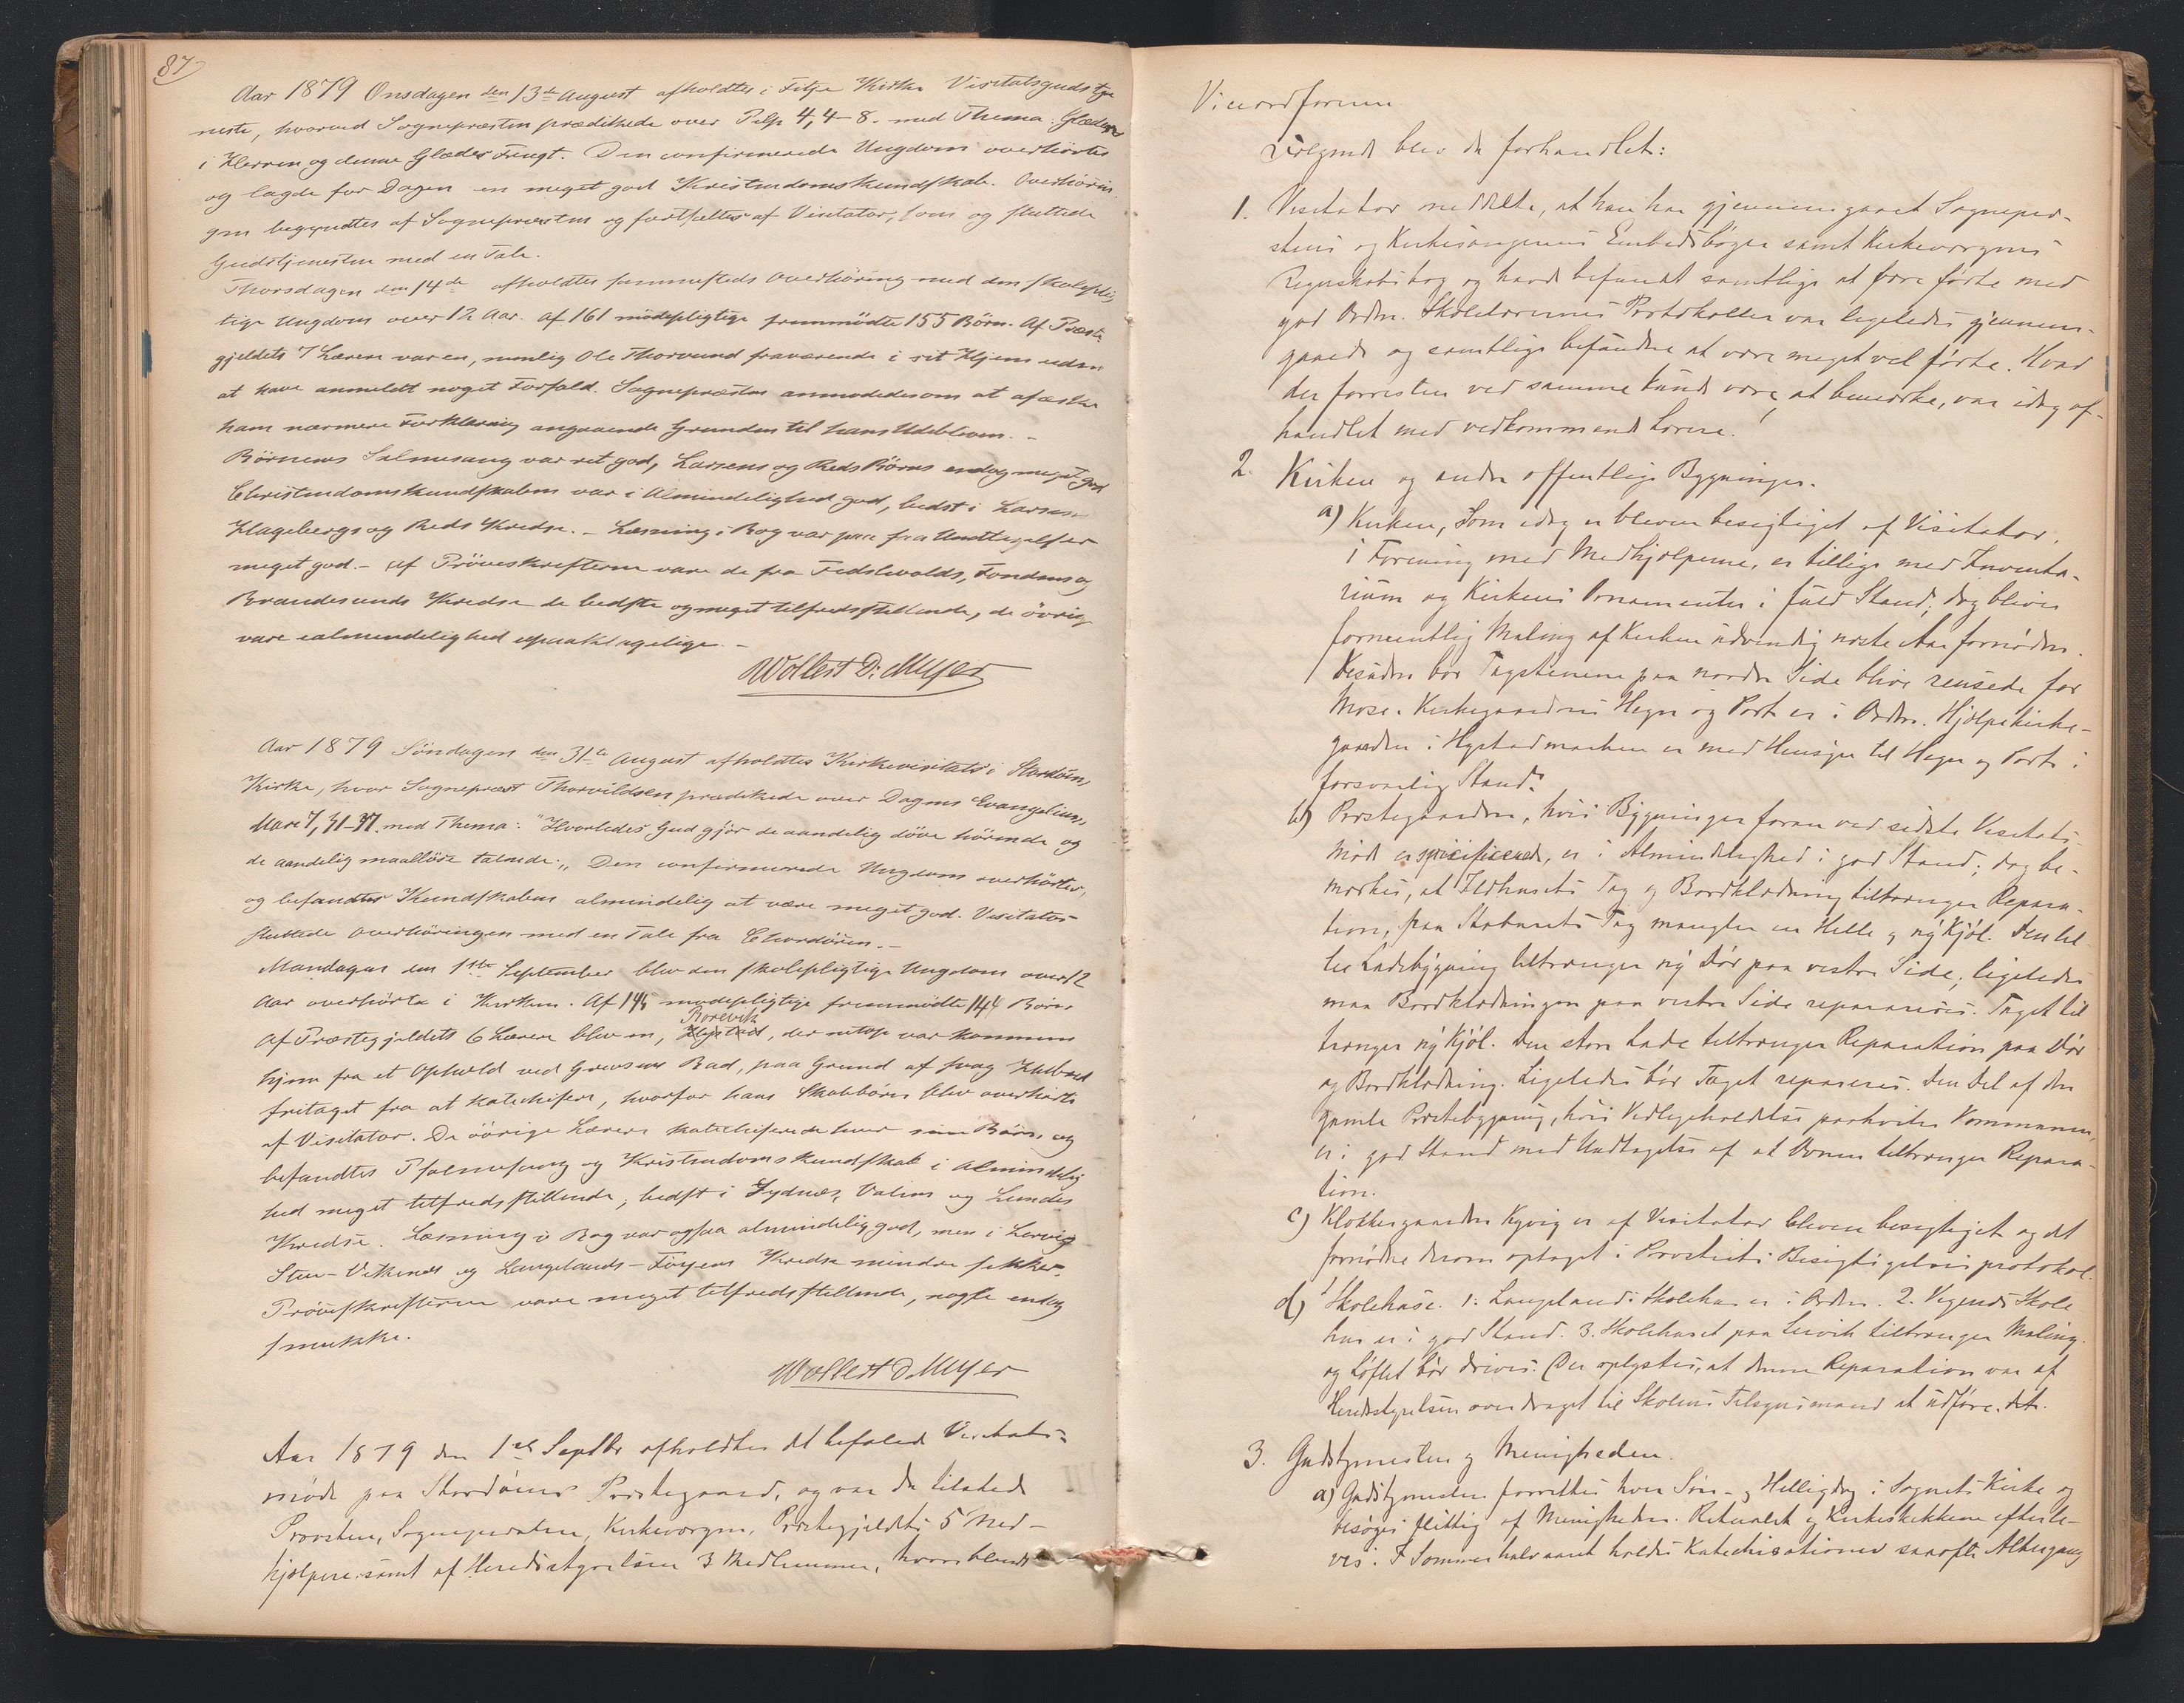 87
Aar 1879 Onsdagen den 13de August afholdtes i Fitje Kirke Visitatsgudstje
neste, hvorved Sognepræsten prædikede over Pilp 4, 4-8. med Thema: Glæden
i Herren og denne Glædes Frugt. Den confirmerede Ungdom overhørtes
og lagde for Dagen en meget god Kristendomskundskab. Overhørin
gen begyndtes af Sognepræsten og fortsattes af Visitator, som og sluttede
Gudstjenesten med en Tale.
Thorsdagen den 14de afholdtes sammesteds Overhøring med den skoleplig
tige Ungdom over 12 Aar. Af 161 mødepligtige fremmødte 155 Børn. Af Præste
gjeldets 7 Lærere var en, nemlig Ole Thorsund fraværende i sit Hjem uden
at have anmeldt noget Forfald. Sognepræsten anmodedes om at afæske
ham nærmere Forklaring angaaende Grunden til hans Udebliven. -
Børnenes Salmesang var ret god, Larsens og Reds Børns endog meget god
Christendomskundskaben var i Almindelighed god, bedst i Larsens
Hagebergs og Reds Kredse. - Læsning i Bog var paa faa Undtagelser
meget god. - Af Prøveskrifterne vare de fra Fedshvolds, Tondens og
Brandesunds Kredse de bedste og meget tilfredsstillende, de øvrige
vare i almindelighed upaaklagelige. -
Wollert D: Meyer
Aar 1879 Søndagen den 31te August afholdtes Kirkevisitats i Stordøens
Kirke, hvor Sognepræst Thorvildsen prædikede over Dagens Evangelium,
Marc 7, 31-37. med Thema: "Hvorledes Gud gjør de aandelig døve hørende og
de aandelig maalløse talende". Den confirmerede Ungdom overhørtes,
og befandtes Kundskaben almindelig at være meget god. Visitator
sluttede Overhøringen med en Tale fra Chordøren. -
Mandagen den 1ste September blev den skolepligtige Ungdom over 12
Aar overhørte i Kirken. Af 145 mødepligtige fremmødte 144 Børn
Borevik
Af Præstegjeldets 6 Lærere blev en, Hystad, der netop var kommen
hjem fra et Ophold ved Grevsens Bad, paa Grund af svag Helbred
fritaget fra at katechisere, hvorfor hans Skolebørn blev overhørte
af Visitator. De øvrige Lærere katechiserede hver sine Børn, og
befandtes Psalmesang og Kristendomskundskab i Almindelig
hed meget tilfredsstillende, bedst i Sydnæs, Valens og Lundes
Kredse. Læsning i Bog var ogsaa almindelig god, men i Lervig
Stue- Vikenes og Langelands- Føyens Kredse mindre sikker.
Prøveskrifterne vare meget tilfredsstillende, nogle endog
smukke.
Wollert D. Meyer
Aar 1879 den 1ste Septbr afholdtes det befalede Visitats-
møde paa Stordøens Præstegaard, og var da tilstede
Provsten, Sognepræsten, Kirkevergen, Præstegjeldets 5 Med-
hjælpere samt af Heredsstyrelsen 3 Medlemmer, hvoriblandt
Viceordføreren.
Følgende blev da forhandlet:
1. Visitator meddelte, at han har gjennemgaaet Sognepræ-
stens og Kirkesangerens Embedsbøger samt Kirkevergens
Regnskabsbog og havde befundet samtlige at være førte med
god Orden. Skolelærernes Protokoller var ligeledes gjennem-
gaaede og samtlige befundne at være meget vel førte. Hvad
der forresten ved samme kunde være at bemærke, var idag af-
handlet med vedkommende Lærere.
2. Kirken og andre offentlige Bygninger.
a) Kirken, som idag er bleven besigtiget af Visitator,
i Forening med Medhjælperne, er tillige med Inventa-
rium og Kirkens Ornamenter i fuld Stand; dog bliver
fornemtlig Maling af Kirken udvendig næste Aar fornøden.
Desuden bør Tagstenene paa nordre Side blive rensede for
Mose. Kirkegaardens Hegn og Port er i Orden. Hjælpekirke-
gaarden i Hystadmarken er med Hensyn til Hegn og Port i
forsvarlig Stand.
b) Præstegaarden, hvis Bygninger foran ved sidste Visitats
Møde er specificerede, er i Almindelighed i god Stand; dog be-
mærkes, at Ildhusets Tag og Bordklædning tiltrænger Repara-
tion, paa Stabburets Tag mangler en Helle og ny Kjøl. Den lil-
le Ladebygning tiltrænger ny Dør paa vestre Side; ligeledes
maa Bordklædningen paa vestre Side repareres. Taget til
trænger ny Kjøl. Den store Lade tiltrænger Reparation paa Dør
og Bordklædning. Ligeledes bør Taget repareres. Den Del af den
gamle Præstebygning, hvis Vedligeholdelse paahviler Kommunen,
er i god Stand med Undtagelse af at Ovnen tiltrænger Repara-
tion.
c) Klokkergaarden Kyvig er af Visitator bleven besigtiget og det
fornødne derom optaget i Provstiets Besigtigelsesprotokol.
d) Skolehuse. 1. Langelands Skolehus er i Orden. 2. Vegends Skole
hus er i god Stand. 3. Skolehuset paa Lervik tiltrænger Maling.
og Loftet bør drives. Der oplystes, at denne Reparation var af
Heredsstyrelsen overdraget til Skolens Tilsynsmand at udføre. det.
3. Gudstjenesten og Menigheden.
a) Gudstjenesten forrettes hver Søn- og Helligdag i Sognets Kirke og
besøges flittig af Menigheden. Ritualet og Kirkeskikkene efterle-
ves. I Sommerhalvaaret holdes Katechisationer saaofte Altergang